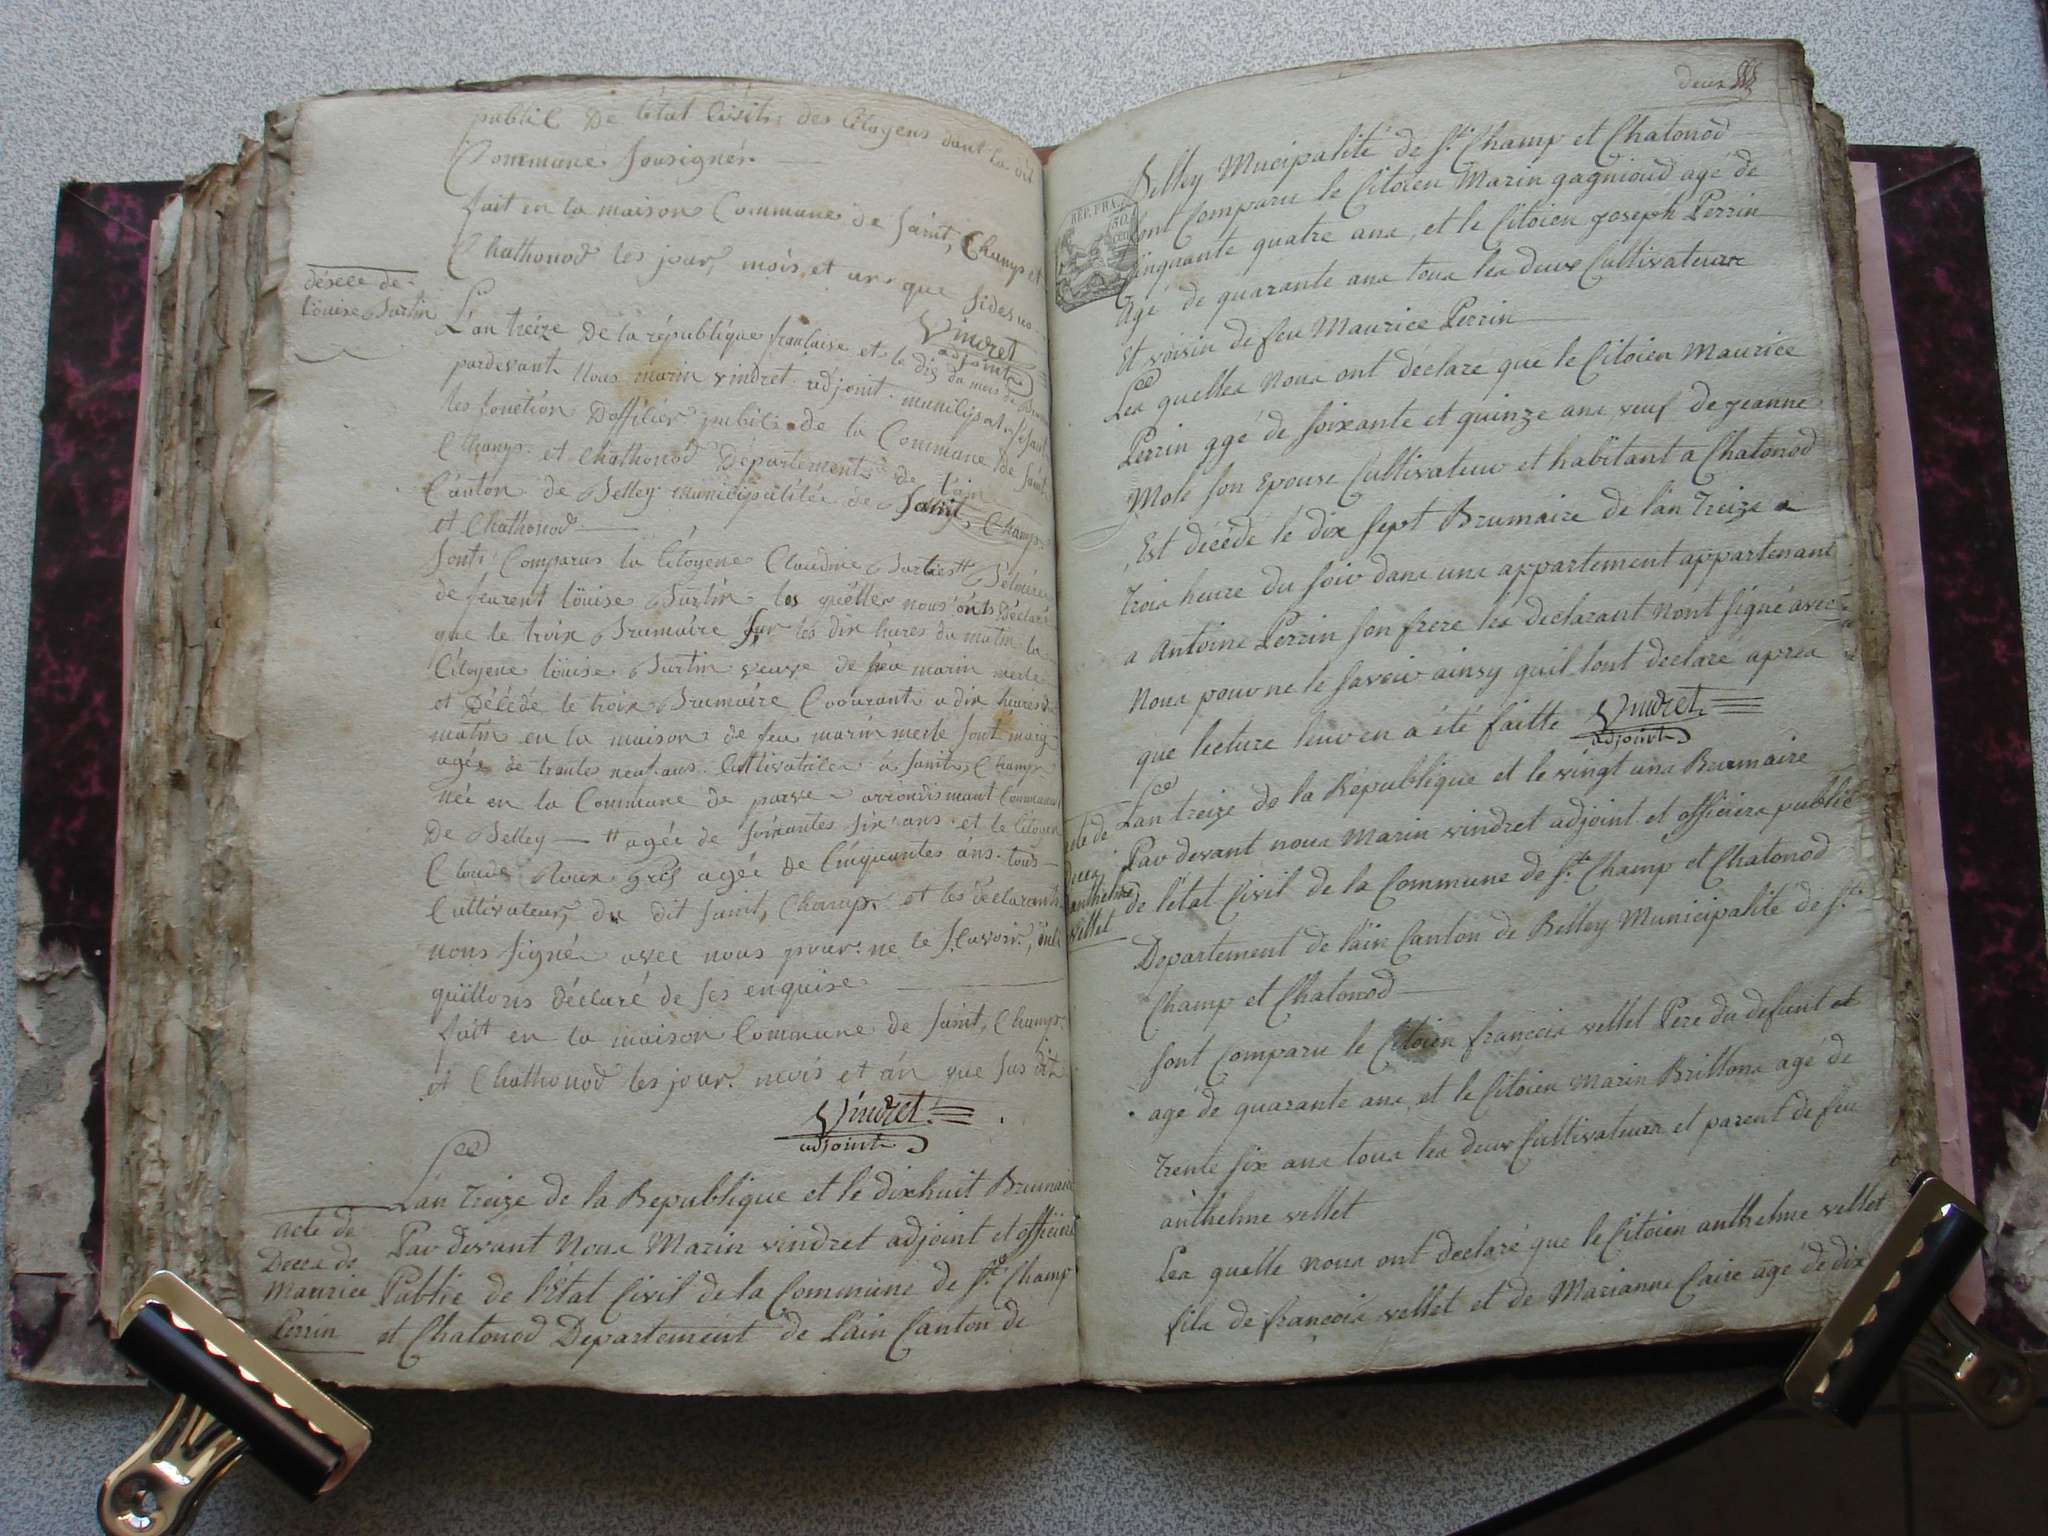 public De létat Civile des Citoyens dant la dit
Commune Sousignés.
fait en la maison Commune de Saint, Champs et
Chathonod les jour, mois et ans que sides
Vindret
adjoint
déséce de
Löuise Burtin
L'an treize De la république francaise et le dix du mois de
pardevant Nous marin vindret adjoint municipal
les fonction Dofficier public de la Commune De Saint
Champ et Chathonod Départements de L'ain
Canton de Belley municipalitée de Saint, Champ
et Chathonod
Sont Comparus la Citoyene Claudine
de feurent Löuise Burtin les quélles nous onts Déclaré
que le troix Brumaire sur les dix hures du matin la
Citoyene Löuise Burtin veuve de feu marin merle
et Décédé le troix Brumaire Coourant a dix heures du
matin en la maison de feu marin merle
agée de trantes neuf ans Cultivatrice a Saint, Champ
née en la Commune de parve arrondismant Communal
De Belley — agée de soixantes six ans et le Citoyen
Claude Roux agée de Cinquantes ans tous
Cultivateur, du dit Saint, Champ et les déclarants
nons signé avec nous pour ne le sçavoir,
quillons déclaré de ses enquise
fait en la maison Commune de Saint, Champ
et Chathonod les jour mois et án que sus dit
Vindret
adjoint
acte de
Deces de
Maurice
Perrin
Lan Treize de la Republique et le dixhuit Brumaire
Par devant Nous Marin vindret adjoint et officier
Public de l'Etat Civil de la Commune de St. Champ
et Chatonod Departement de Lain Canton de
deux
REP. FRA.
50
Belley Mucipalité de St. Champ et Chatonod
Sont Comparu le Citoien Marin gagnioud agé de
Cinquante quatre ans, et le Citoien joseph Perrin
Agé de quarante ans tous les deux Cultivateurs
Et voisin de feu Maurice Perrin
Les quelles Nous ont declaré que le Citoien Maurice
Perrin age de soixante et quinze ans veuf de jeanne
Mole son Epouse Cultivateur et habitant a Chatonod
Est décedé le dix sept Brumaire de lan Treize a
Trois heure du soir dans une appartement appartenant
a Antoine Perrin son frere les declarant nont signé avec
Nous pour ne le savoir ainsy quil lont declare apres
que lecture leur en a été faitte Vindret
adjoint
acte de
deces
anthelme
vellet
Lan treize de la République et le vingt uns Brumaire
Par devant nous Marin vindret adjoint et officiers public
de l'état Civil de la Commune de St. Champ et Chatonod
Departement de lain Canton de Belley Municipalité de St.
Champ et Chatonod
Sont Comparu le Citoien francois vellet Pere du defunt et
agé de quarante ans, et le Citoien Marin Brillons agé de
Trente six ans tous les deux Cultivateurs et parent de feu
anthelme vellet
Les quelle nous ont declaré que le Citoien anthelme vellet
fils de francois vellet et de Marianne Caire agé de dix